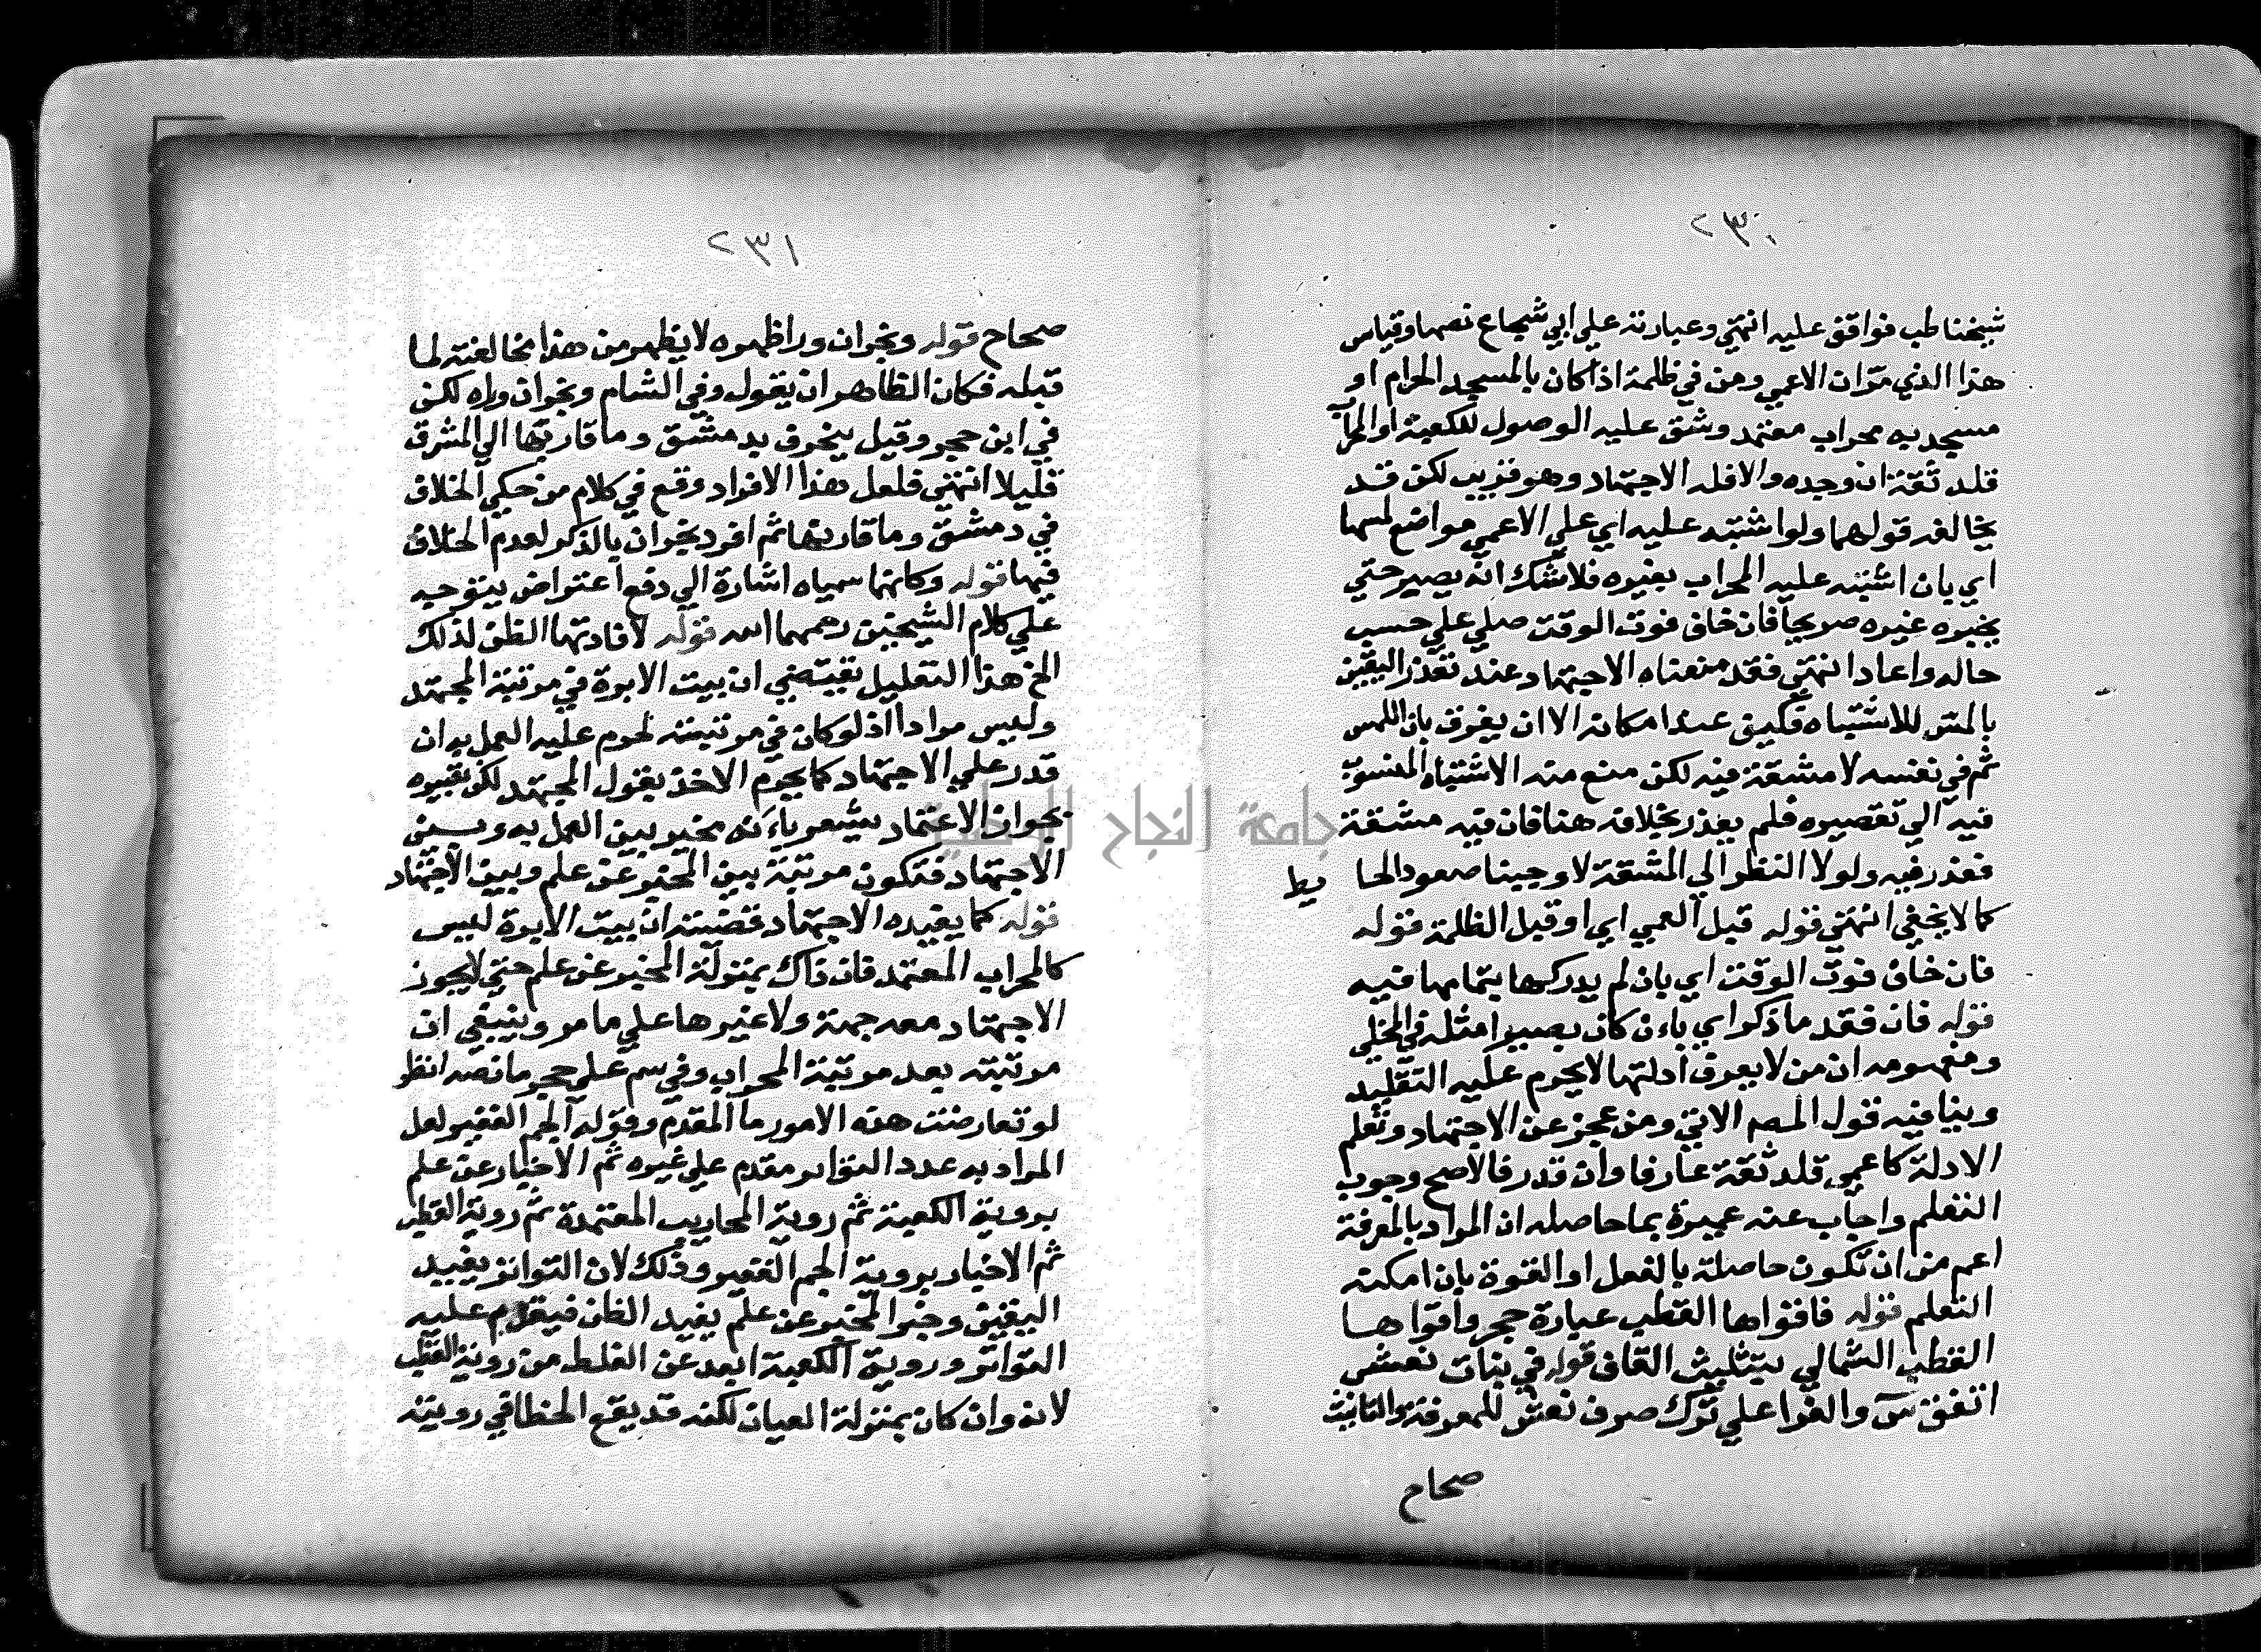 ٢٣٠
شيخنا طب فوافق عليه انتهي وعبارته علي ابي شجاع نصها وقياس
هذا الذي مر ان الاعمي ومن في ظلمة اذا كان بالمسجد الحرام او
مسجد به محراب معتمد وشق عليه الوصول للكعبة او المحراب
قلد ثقة ان وجده والا فله الاجتهاد وهو قريب لكن قد
يخالفه قولهما ولو اشتبه عليه اي علي الاعمي مواضع لمسها
اي بان اشتبه عليه المحراب بغيره فلا شك انه يصبر حتي
يخبره غيره صريحا فان خاف فوت الوقت صلي علي حسب
حاله واعاد انتهي فقد منعناه الاجتهاد عند تعذر اليقين
بالمس للاشتباه فكيف عند امكانه الا ان يفرق بان اللمس
ثم في نفسه لا مشقة فيه لكن منع منه الاشتباه المنسوب
فيه الي تقصيره فلم يعذر بخلافه هنا فان فيه مشقة
فعذر فيه ولولا النظر الي المشقة لاوجبنا صعود الحا يط
كما لا يخفي انتهي قوله قبل العمي اي او قبل الظلمة قوله
فان خاف فوت الوقت اي بان لم يدركها بتمامها فيه
قوله فان فقد ما ذكر اي باءن كان بصيرا مثله في الخلي
ومفهومه ان من لا يعرف ادلتها لا يحرم عليه التقليد
وينافيه قول المصم الاتي ومن عجز عن الاجتهاد وتعلم
الادلة كاعمي قلد ثقة عارفا وان قدر فالاصح وجوب
التعلم واجاب عنه عميرة بما حاصله ان المراد بالمعرفة
اعم من ان تكون حاصلة بالفعل او القوة بان امكنه
التعلم قوله فاقواها القطب عبارة حجر واقواها
القطب الشمالي بتثليث القاف قوله في بنات نعش
اتفق س والفرا علي ترك صرف نعش للمعرفة والتانيث
صحاح
٢٣١
صحاح قوله وبحران ورا ظهره لا يظهر من هذا مخالفته لما
قبله فكان الظاهر ان يقول وفي الشام وبحران وراه لكن
في ابن حجر وقيل ينحرف بدمشق وما قاربها الي المشرق
قليلا انتهي فلعل هذا الافراد وقع في كلام من حكي الخلاف
في دمشق وما قاربها ثم افرد بحران بالذكر لعدم الخلاف
فيها قوله وكانهما سمياه اشارة الي دفع اعتراض يتوجه
علي كلام الشيخين رحمهما الله قوله لافادتها الظن لذلك
الخ هذا التعليل يقتضي ان بيت الابرة في مرتبة المجتهد
وليس مرادا اذ لو كان في مرتبته لحرم عليه العمل به ان
قدر علي الاجتهاد كما يحرم الاخذ بقول المجتهد لكن تعبيره
بجواز الاعتماد يشعر باءنه مخير بين العمل به وبين
الاجتهاد فتكون مرتبة بين المخبر عن علم وبين الاجتهاد
قوله كما يفيده الاجتهاد قضيته ان بيت الابرة ليس
كالمحراب المعتمد فان ذاك بمنزلة المخبر عن علم حتي لا يجوز
الاجتهاد معه جهة ولا غيرها علي ما مر وينبغي ان
مرتبته بعد مرتبة المحراب وفي سم علي حجر ما نصه انظر
لو تعارضت هذه الامور ما المقدم وقوله الجم الغفير لعل
المراد به عدد التواتر مقدم علي غيره ثم الاخبار عن علم
بروية الكعبة ثم روية المحاريب المعتمدة ثم روية القطب
ثم الاخبار بروية الجم الغفير وذلك لان التواتر يفيد
اليقين وخبر المخبر عن علم يفيد الظن فيقدم عليه
التواتر وروية الكعبة ابعد عن الغلط من روية القطب
لانه وان كان بمنزلة العيان لكنه قد يقع الخطا في رويته
جامعة النجاح الوطنية